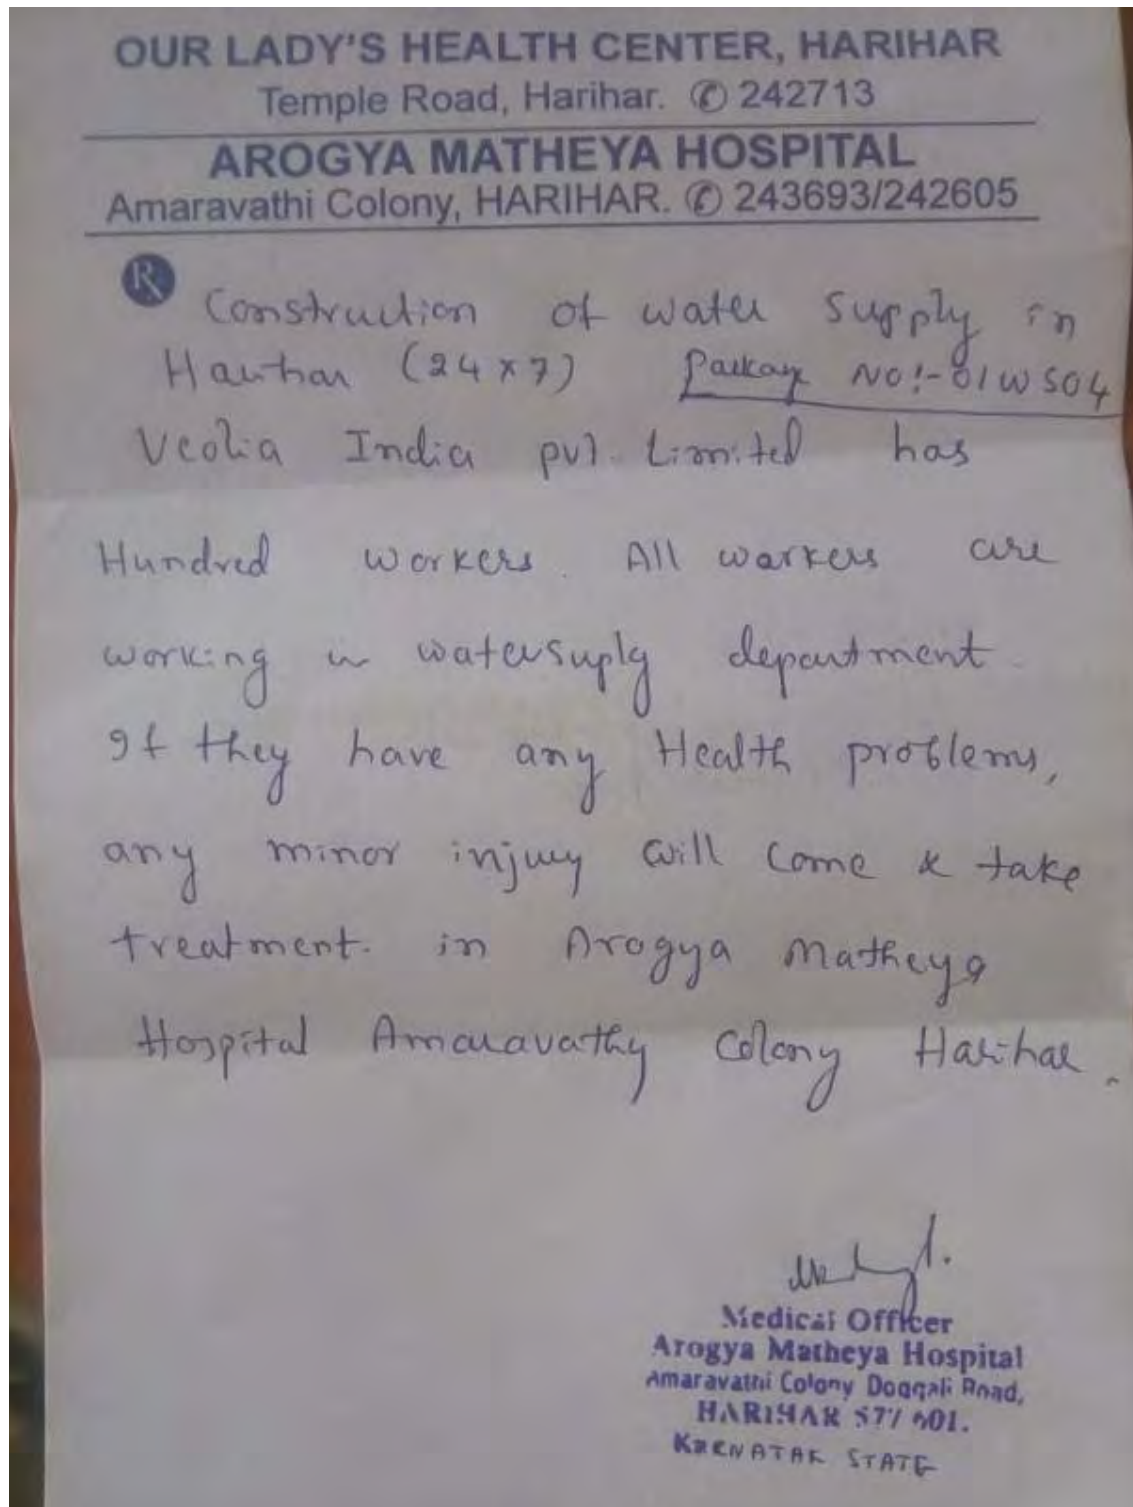 OUR LADY'S HEALTH CENTER, HARIHAR
Temple Road, Harihar. ✆ 242713
AROGYA MATHEYA HOSPITAL
Amaravathi Colony, HARIHAR. ✆ 243693/242605
Rx
Construction of water supply in
Harihar (24x7) Package No:-01WS04
Veolia India pvt. Limited has
Hundred workers. All workers are
working in watersuply department.
If they have any Health problems,
any minor injury will come & take
treatment. in Arogya Matheya
Hospital Amaravathy Colony Harihar.
Medical Officer
Arogya Matheya Hospital
Amaravathi Colony Doggali Road,
HARIHAR 577 601.
KARNATAK STATE